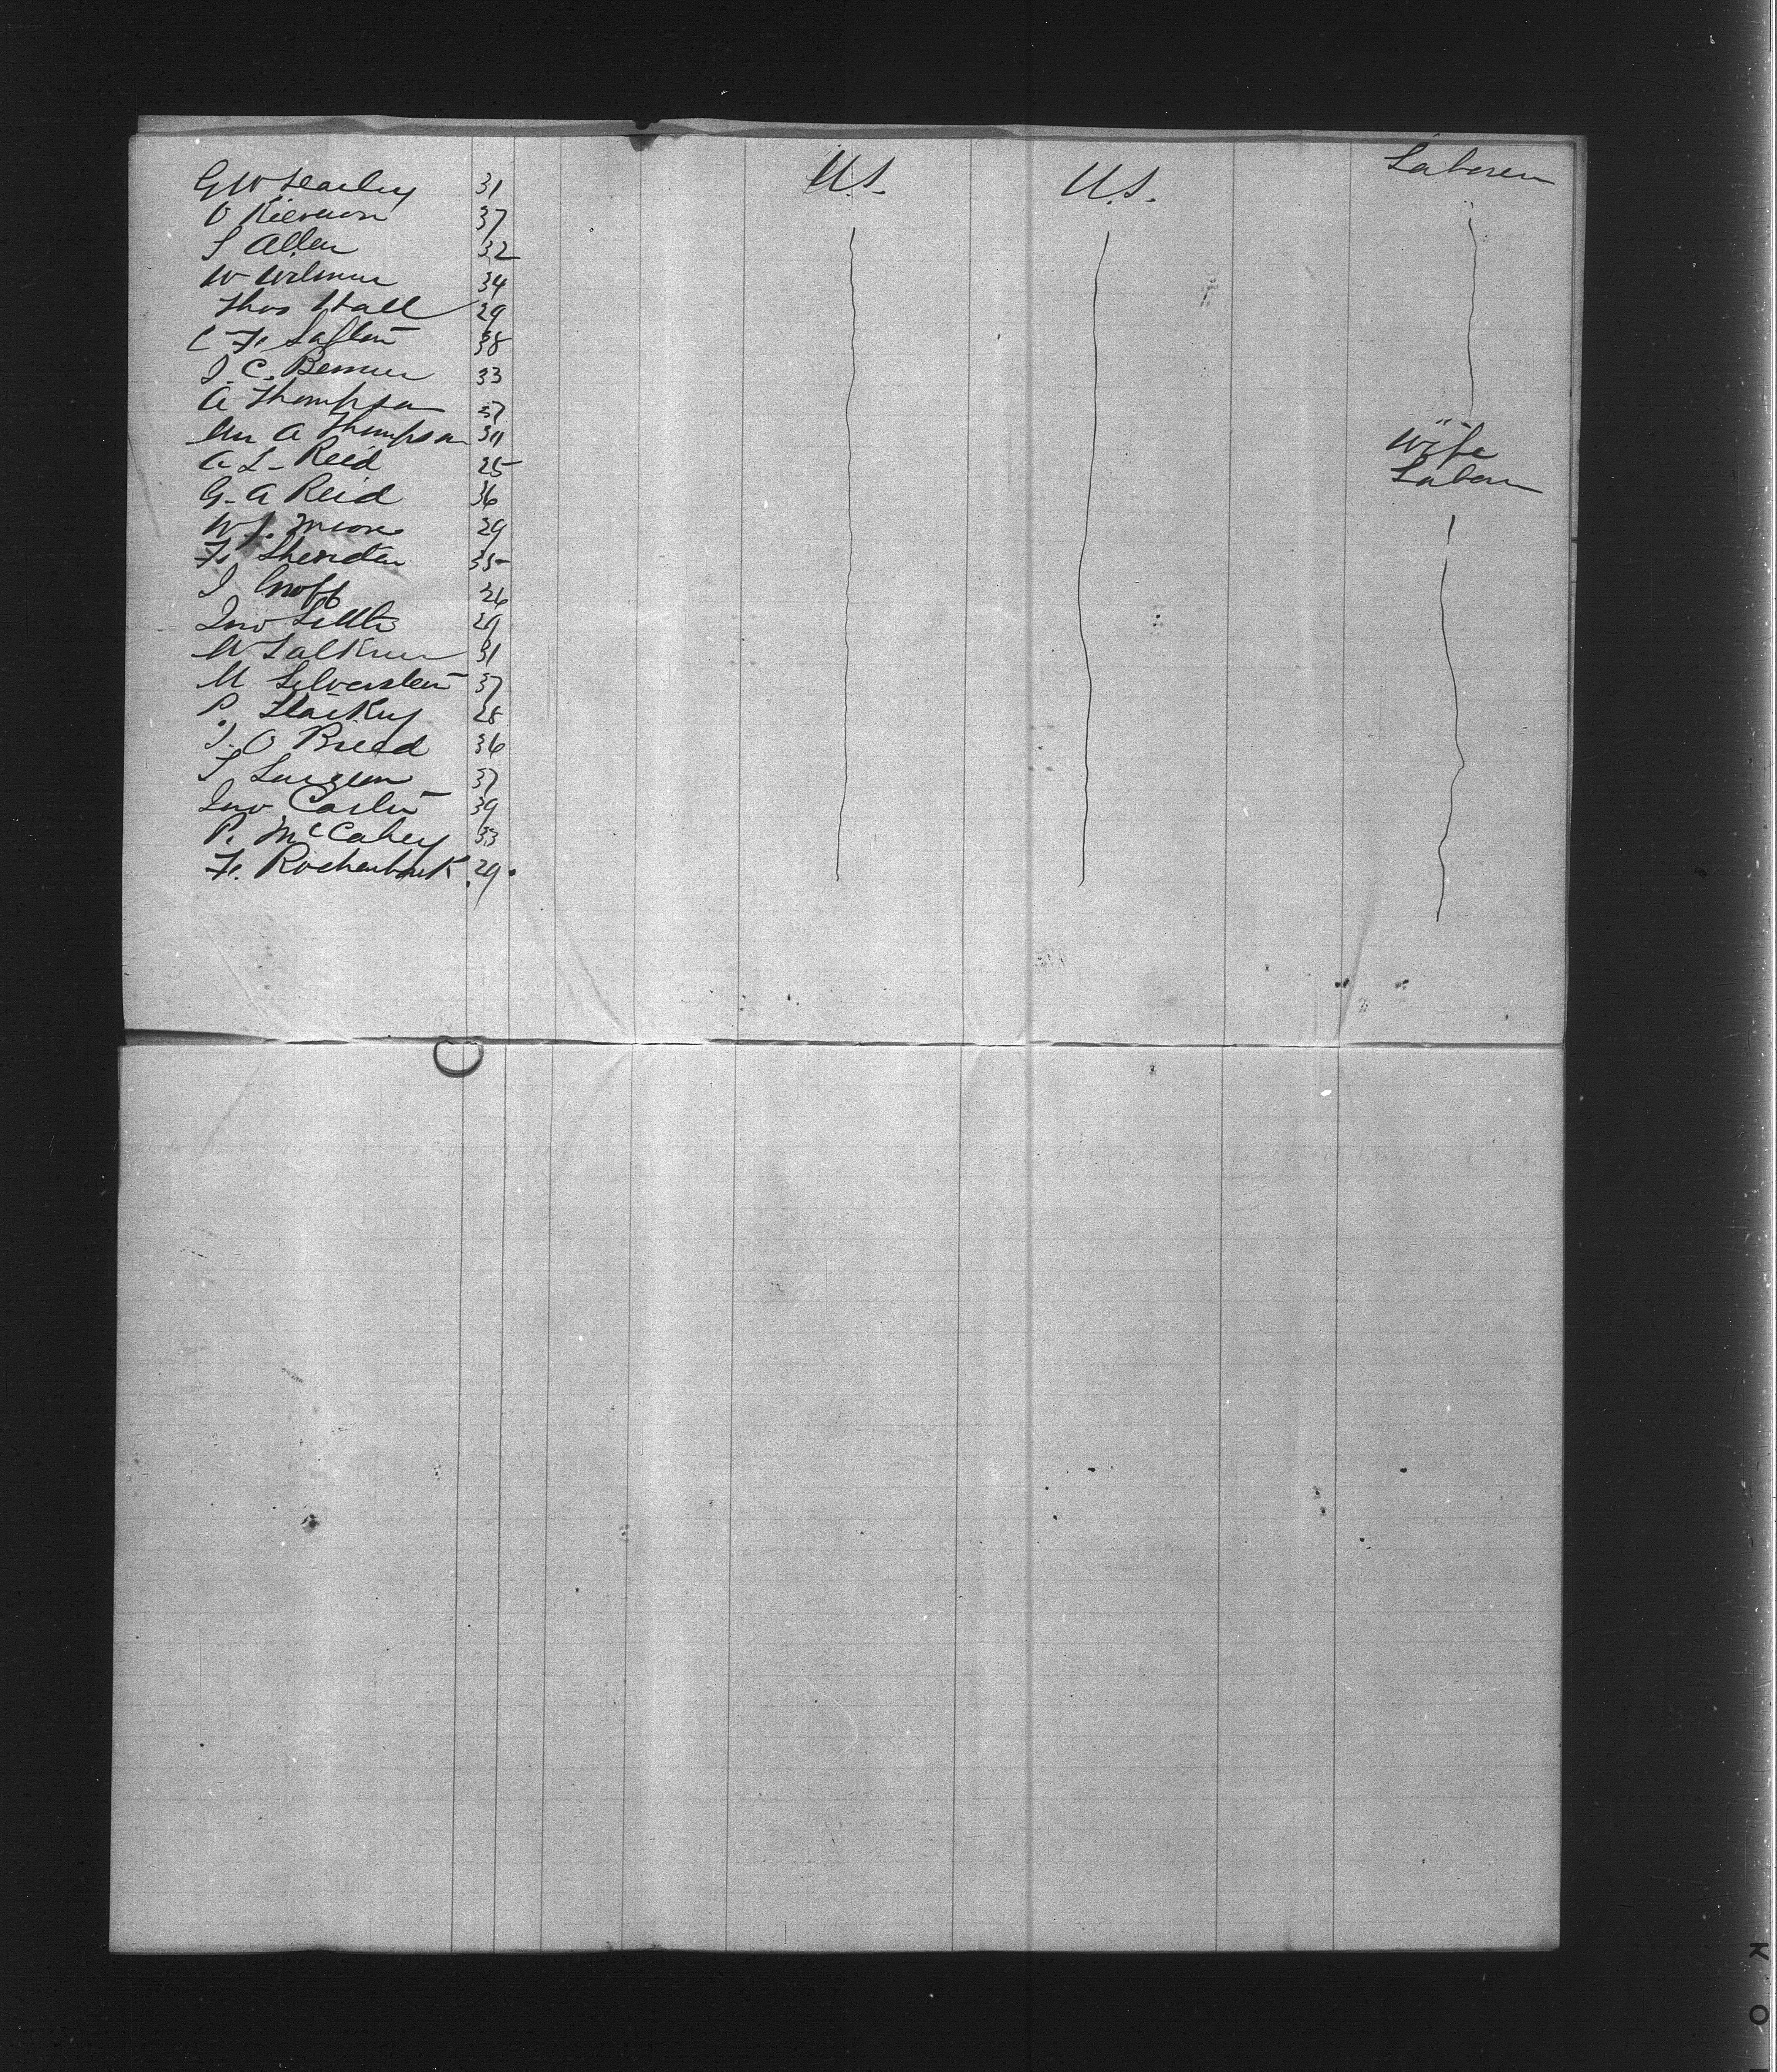 G W Learley 31 U.S. U.S. Laborer
O Kiernan 37 "
S Allen 32
W Wilmer 34
Thos Hall 29
C F. Laflin 38
J. C. Benner 33
A Thompson 37
Mrs A Thompson 30 " Wife
A L- Reid 25 Laborer
G. A Reid 36
W J. Moore 29
F. Sheridan 35
J Groff 26
Jno Little 29
W Salkner 31
M Silverstein 37
P. Flaikey 28
J. O Breed 36
S Surgeon 37
Jno Carlin 39
P. McCabey 33
F. Rochenbuck 29.
K O